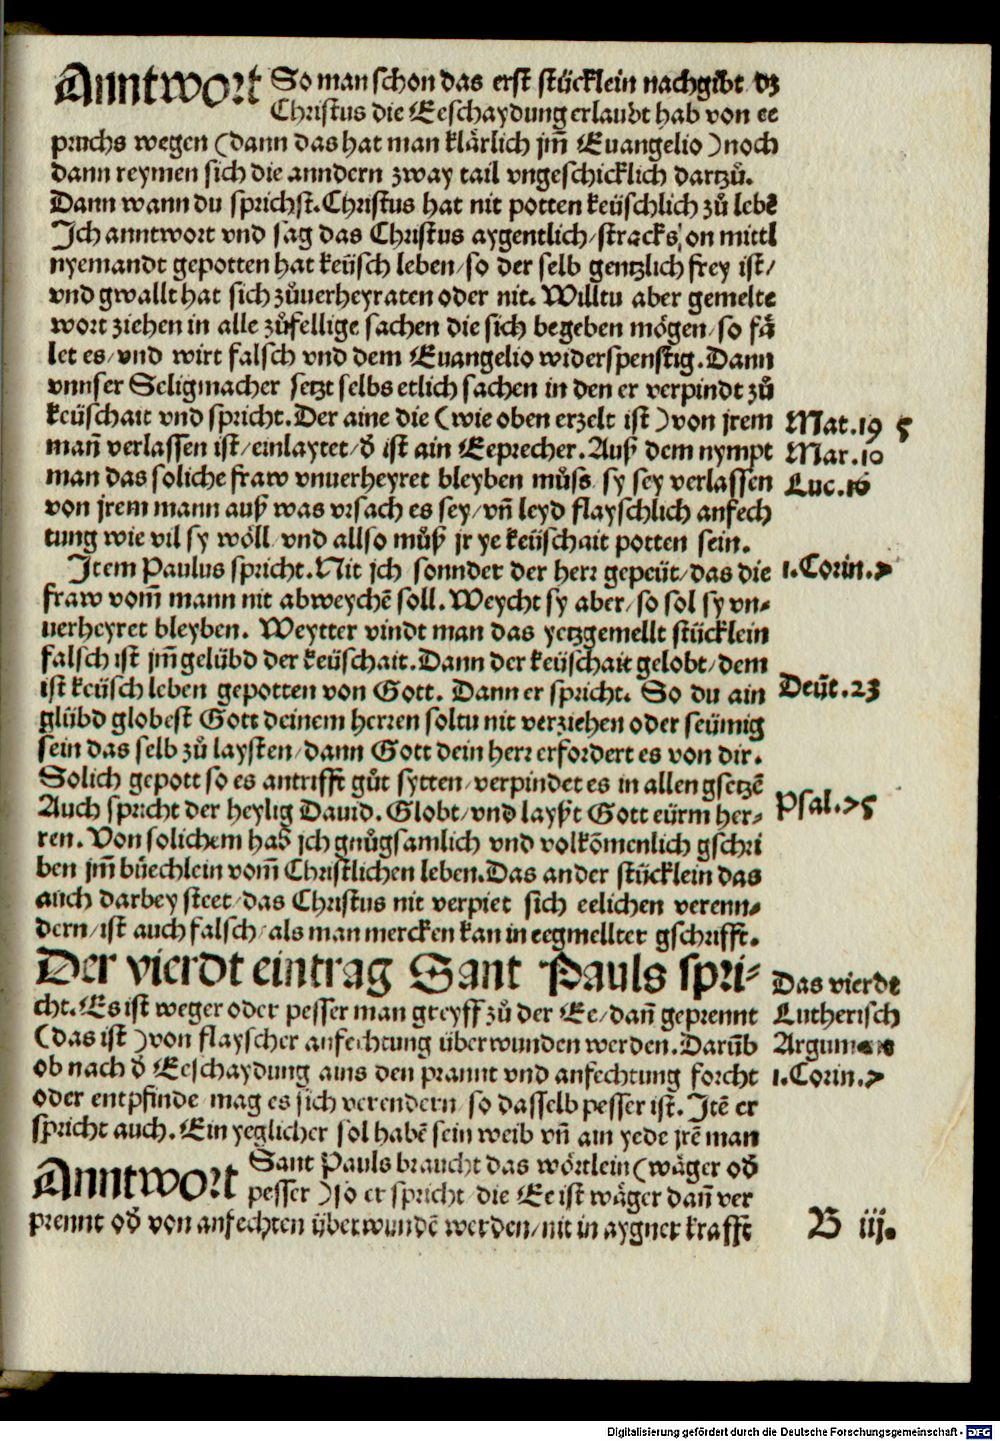 Anntwort So man schon das erst stücklein nachgibt dz
Christus die Eeschaydung erlaubt hab von ee
pruchs wegen (dann das hat man klärlich jm̃ Euangelio) noch
dann reymen sich die anndern zway tail vngeschicklich dartzů.
Dann wann du sprichst. Christus hat nit potten keüschlich zů lebẽ
Ich anntwort vnd sag das Christus aygentlich/ stracks/ on mittl
nyemandt gepotten hat keüsch leben/ so der selb gentzlich frey ist/
vnd gwallt hat sich zůuerheyraten oder nit. Willtu aber gemelte
wort ziehen in alle zůfellige sachen die sich begeben mögen/ so fä
let es/ vnd wirt falsch vnd dem Euangelio widerspenstig. Dann
vnnser Seligmacher setzt selbs etlich sachen in den er verpindt zů
keüschait vnd spricht. Der aine die (wie oben erzelt ist) von jrem
mañ verlassen ist/ einlaytet/ d̃ ist ain Eeprecher. Auß dem nympt
man das soliche fraw vnuerheyret bleyben můss sy sey verlassen
von jrem mann auß was vrsach es sey/ vñ leyd flayschlich anfech
tung wie vil sy wöll/ vnd allso můß jr ye keüschait potten sein.
Item Paulus spricht. Nit jch sonnder der herr gepeüt/ das die
fraw vom̃ mann nit abweychẽ soll. Weycht sy aber/ so sol sy vn-
uerheyret bleyben. Weytter vindt man das yetzgemellt stücklein
falsch ist jm̃ gelübd der keüschait. Dann der keüschait gelobt/ dem
ist keüsch leben gepotten von Gott. Dann er spricht. So du ain
glübd globest Gott deinem herren soltu nit verziehen oder seümig
sein das selb zů laysten/ dann Gott dein herr erfordert es von dir.
Solich gepott so es antrifft gůt sytten/ verpindet es in allen gsetzẽ
Auch spricht der heylig Dauid. Globt/ vnd layßt Gott eürm her-
ren. Von solichem hab jch gnůgsamlich vnd volkõmenlich gschri
ben jm̃ büechlein vom̃ Christlichen leben. Das ander stücklein das
auch darbey steet/ das Christus nit verpiet sich eelichen verenn-
dern/ ist auch falsch/ als man mercken kan in eegmellter gschrifft.
Der vierdt eintrag Sant Pauls spri-
cht. Es ist weger oder pesser man greyff zů der Ee/ dañ geprennt
(das ist) von flayscher anfechtung überwunden werden. Darũb
ob nach d̃ Eeschaydung ains den prannt vnd anfechtung forcht
oder entpfinde mag es sich verendern so dasselb pesser ist. Itẽ er
spricht auch. Ein yeglicher sol habẽ sein weib vñ ain yede jrẽ man
Anntwort Sant Pauls braucht das wörtlein (wäger od̃
pesser) so er spricht/ die Ee ist wäger dañ ver
prennt od̃ von anfechten überwundẽ werden/ nit in aygner krafft
Mat.19 5
Mar.10
Luc.16
1.Corin.7
Deüt.23
Psal.75
Das vierdt
Lutherisch
1.Corin.7
B iij.
Digitalisierung gefördert durch die Deutsche Forschungsgemeinschaft - DFG